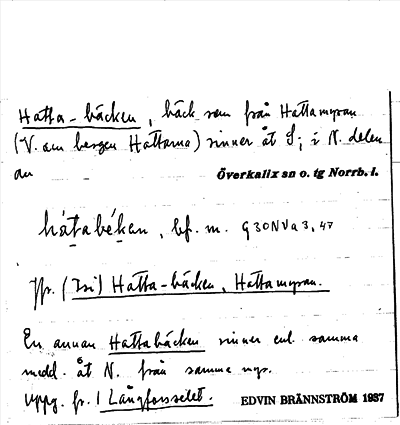 Hatta-bäcken, bäck som från Hattamyran
(V. om bergen Hattarna) rinner åt S; i N. delen
av Överkalix sn o. tg Norrb. l.
hátabéken, bf. m. G30NVa3,47
Jfr. (Isi) Hatta-bäcken, Hattamyran.
En annan Hattabäcken rinner enl. samma
medd. åt N. från samma myr.
Uppg. fr. Långforsselet. EDVIN BRÄNNSTRÖM 1937